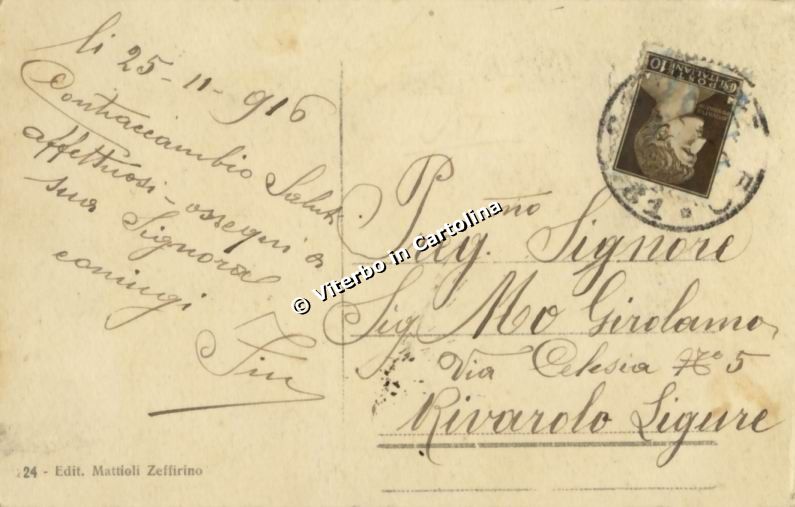 li 25-11-916
Contraccambio Saluti
affettuosi - ossequi a
sua Signora
coniugi
Preg.mo Signore
Sig. Mo Girolamo
Via Celesia No 5
Rivarolo Ligure
POSTE ITALIANE
© Viterbo in Cartolina
24 - Edit. Mattioli Zeffirino